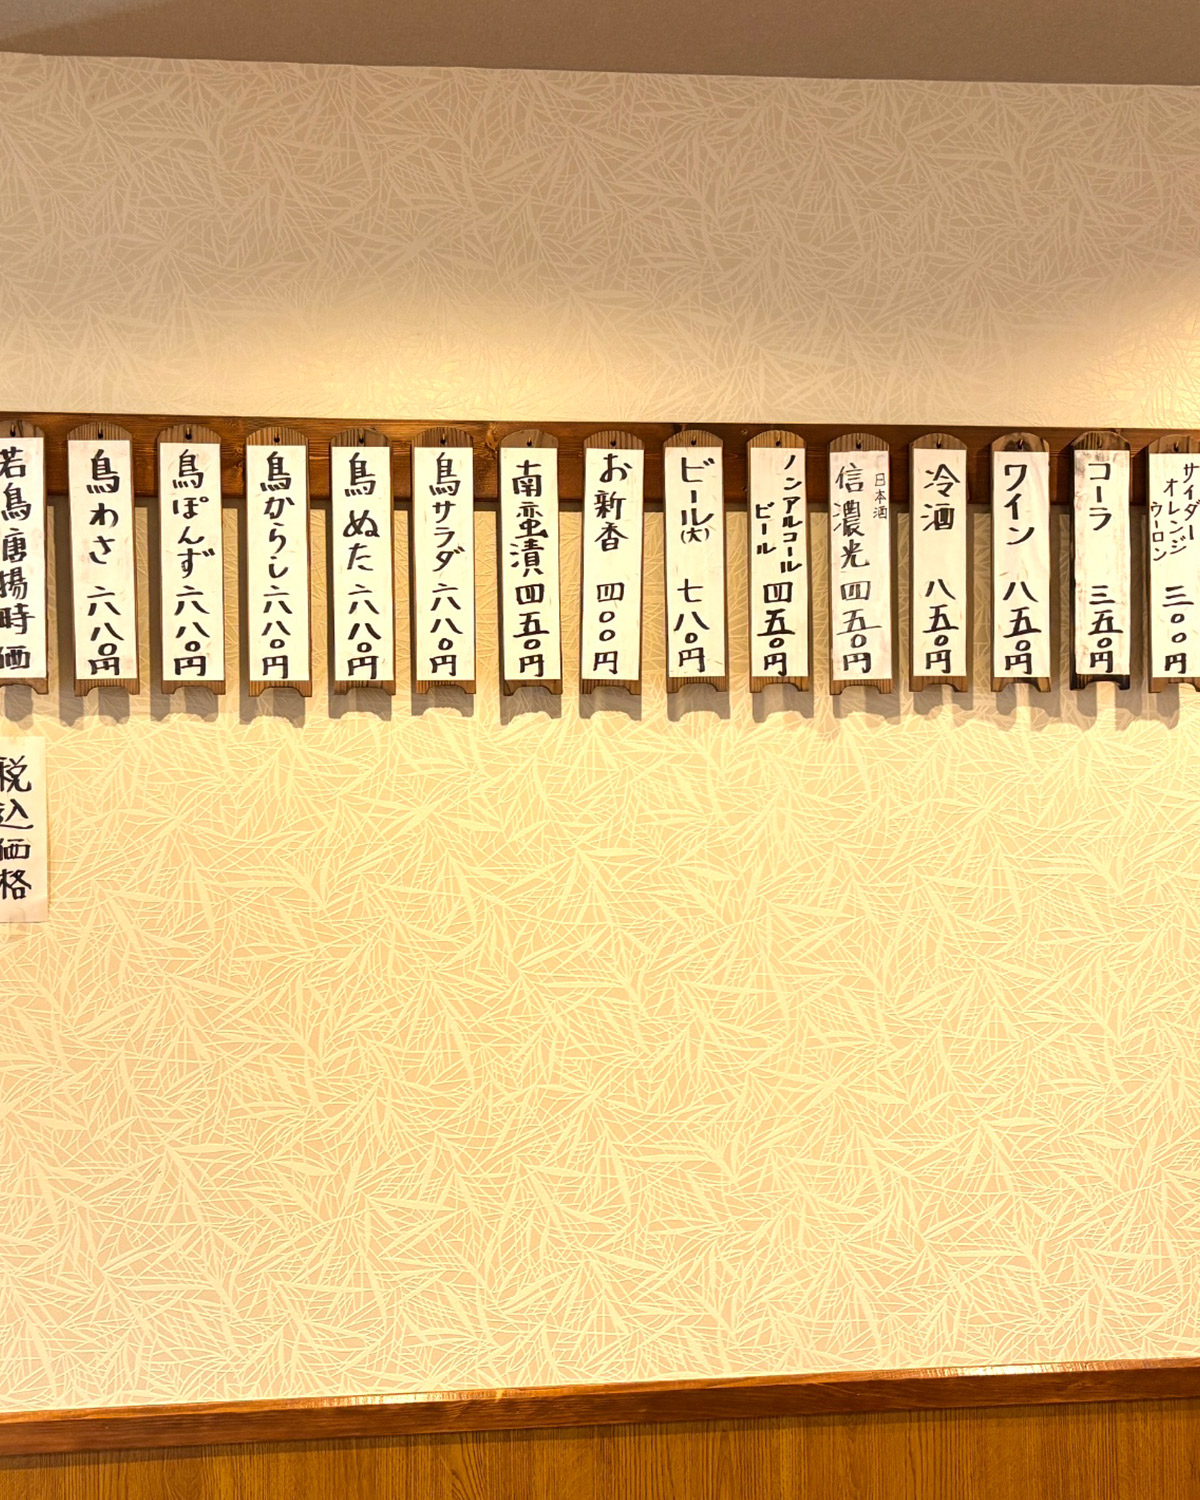 若鳥唐揚時価
税込価格
鳥わさ 六八〇円
鳥ぽんず 六八〇円
鳥からし 六八〇円
鳥ぬた 六八〇円
鳥サラダ 六八〇円
南蛮漬 四五〇円
お新香 四〇〇円
ビール(大) 七八〇円
ノンアルコール
ビール 四五〇円
日本酒
信濃光 四五〇円
冷酒 八五〇円
ワイン 八五〇円
コーラ 三五〇円
サイダー
オレンジ
ウーロン
三〇〇円